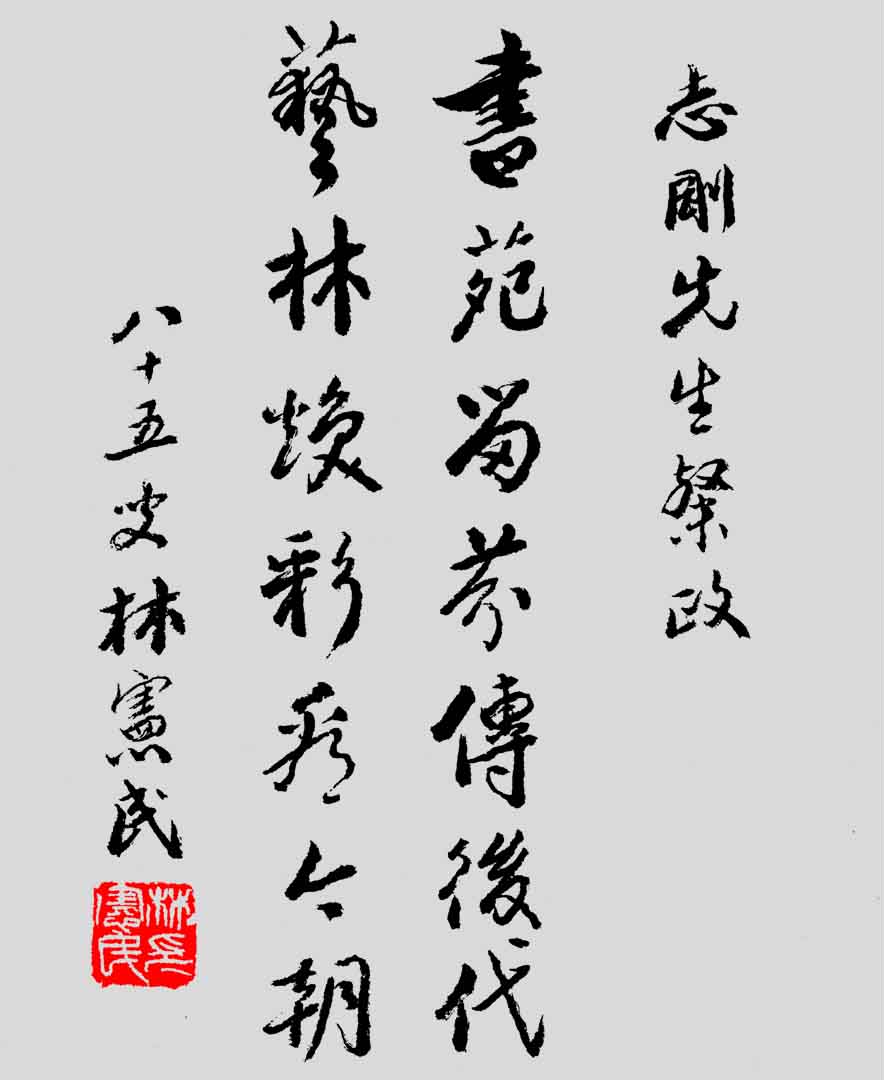 志剛先生粲政
書苑留芬傳後代
藝林煥彩看今朝
八十五叟林憲民
林憲民印